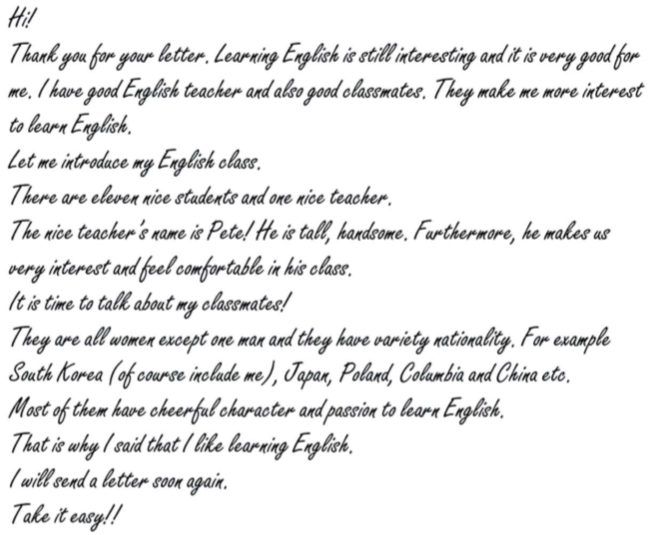 Hi!
Thank you for your letter. Learning English is still interesting and it is very good for
me. I have good English teacher and also good classmates. They make me more interest
to learn English.
Let me introduce my English class.
There are eleven nice students and one nice teacher.
The nice teacher's name is Pete! He is tall, handsome. Furthermore, he makes us
very interest and feel comfortable in his class.
It is time to talk about my classmates!
They are all women except one man and they have variety nationality. For example
South Korea (of course include me), Japan, Poland, Columbia and China etc.
Most of them have cheerful character and passion to learn English.
That is why I said that I like learning English.
I will send a letter soon again.
Take it easy!!